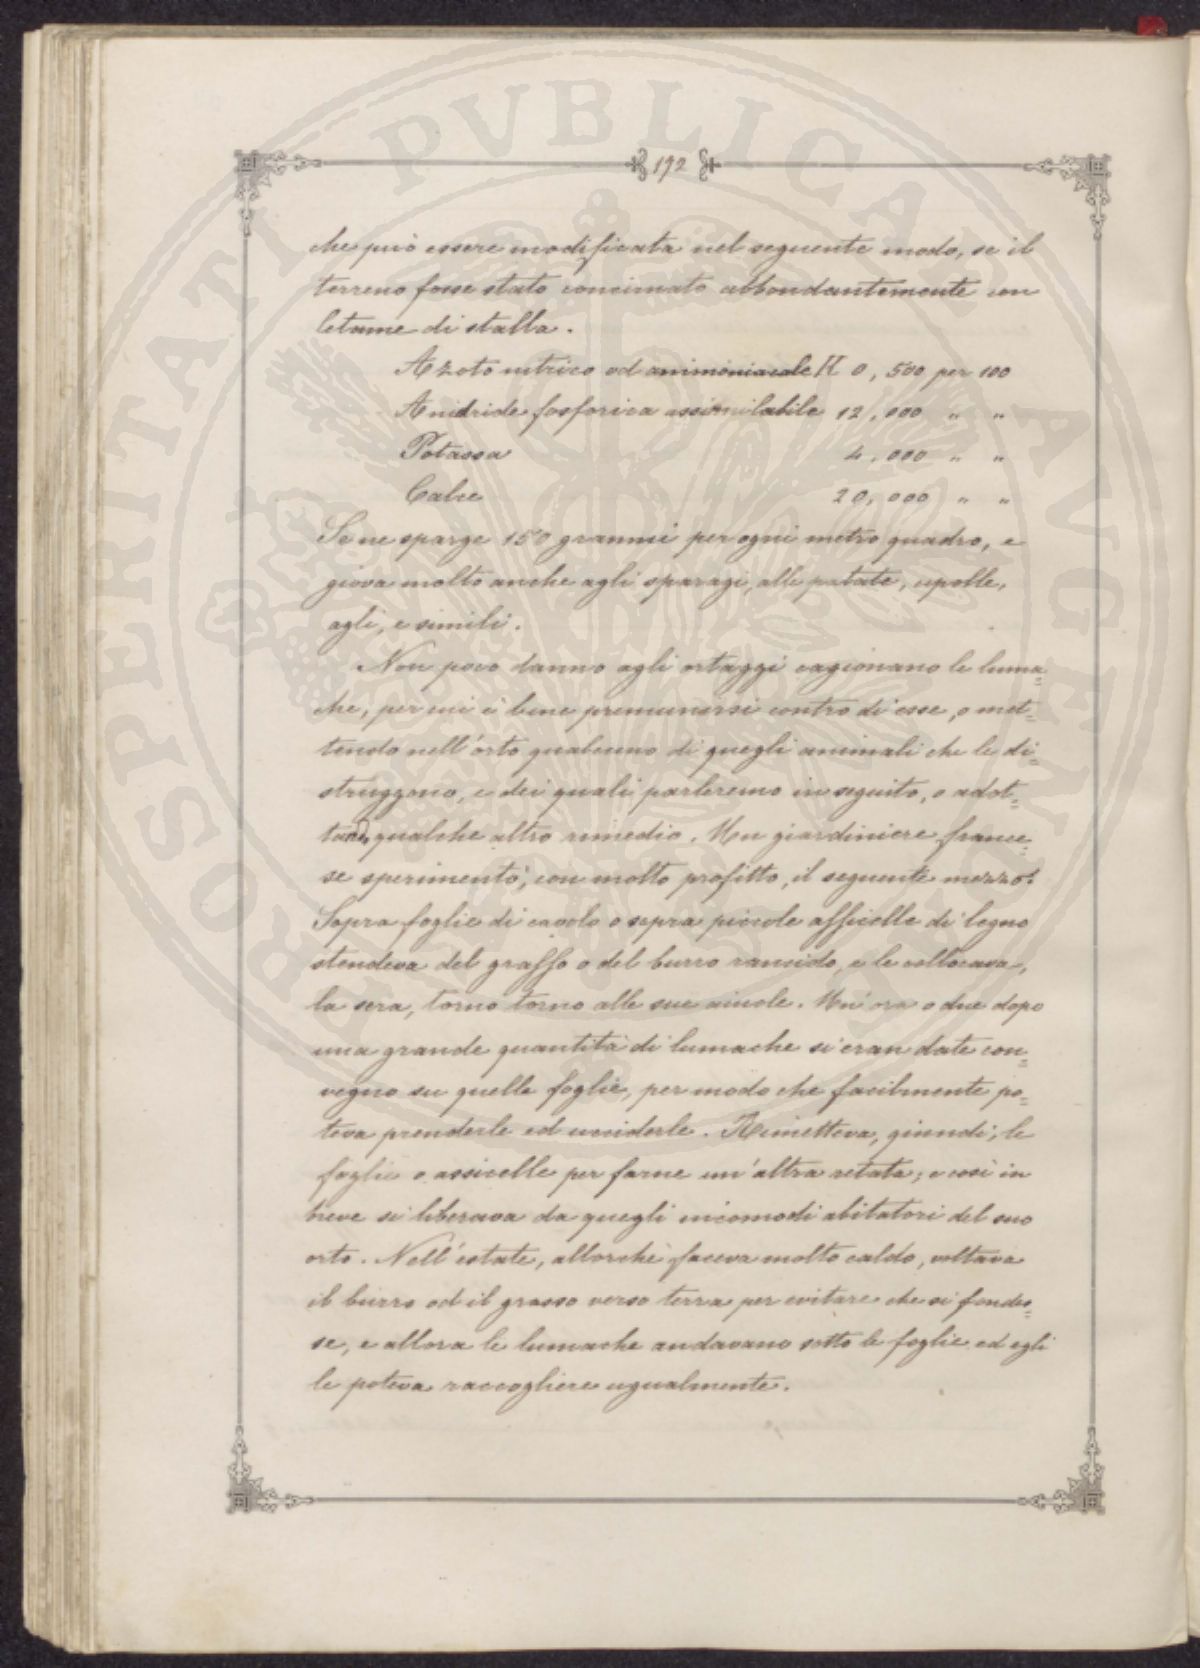 192
che può essere modificata nel seguente modo, se il
terreno fosse stato concimato abbondantemente con
letame di stalla.
Azoto nitrico od ammoniacale K 0,500 per 100
Anidride fosforica assimilabile 12,000 " "
Potassa 4,000 " "
Calce 20,000 " "
Se ne sparge 150 grammi per ogni metro quadro, e
giova molto anche agli sparagi, alle patate, cipolle,
agli, e simili.
Non poco danno agli ortaggi cagionano le luma=
che, per cui è bene premunirsi contro di esse, o met=
tendo nell'orto qualcuno di quegli animali che le di=
struggono, e dei quali parleremo in seguito, o adot=
tando qualche altro rimedio. Un giardiniere france=
se sperimentò, con molto profitto, il seguente mezzo:
Sopra foglie di cavolo o sopra piccole assicelle di legno
stendeva del grasso o del burro rancido, e le collocava,
la sera, torno torno alle sue aiuole. Un'ora o due dopo
una grande quantità di lumache si eran date con=
vegno su quelle foglie, per modo che facilmente po=
teva prenderle ed ucciderle. Rimetteva, quindi, le
foglie o assicelle per farne un'altra retata; e così in
breve si liberava da quegli incomodi abitatori del suo
orto. Nell'estate, allorchè faceva molto caldo, voltava
il burro od il grasso verso terra per evitare che si fondes=
se, e allora le lumache andavano sotto le foglie ed egli
le poteva raccogliere ugualmente.
PROSPERITATI PVBLICAE AVGENDAE